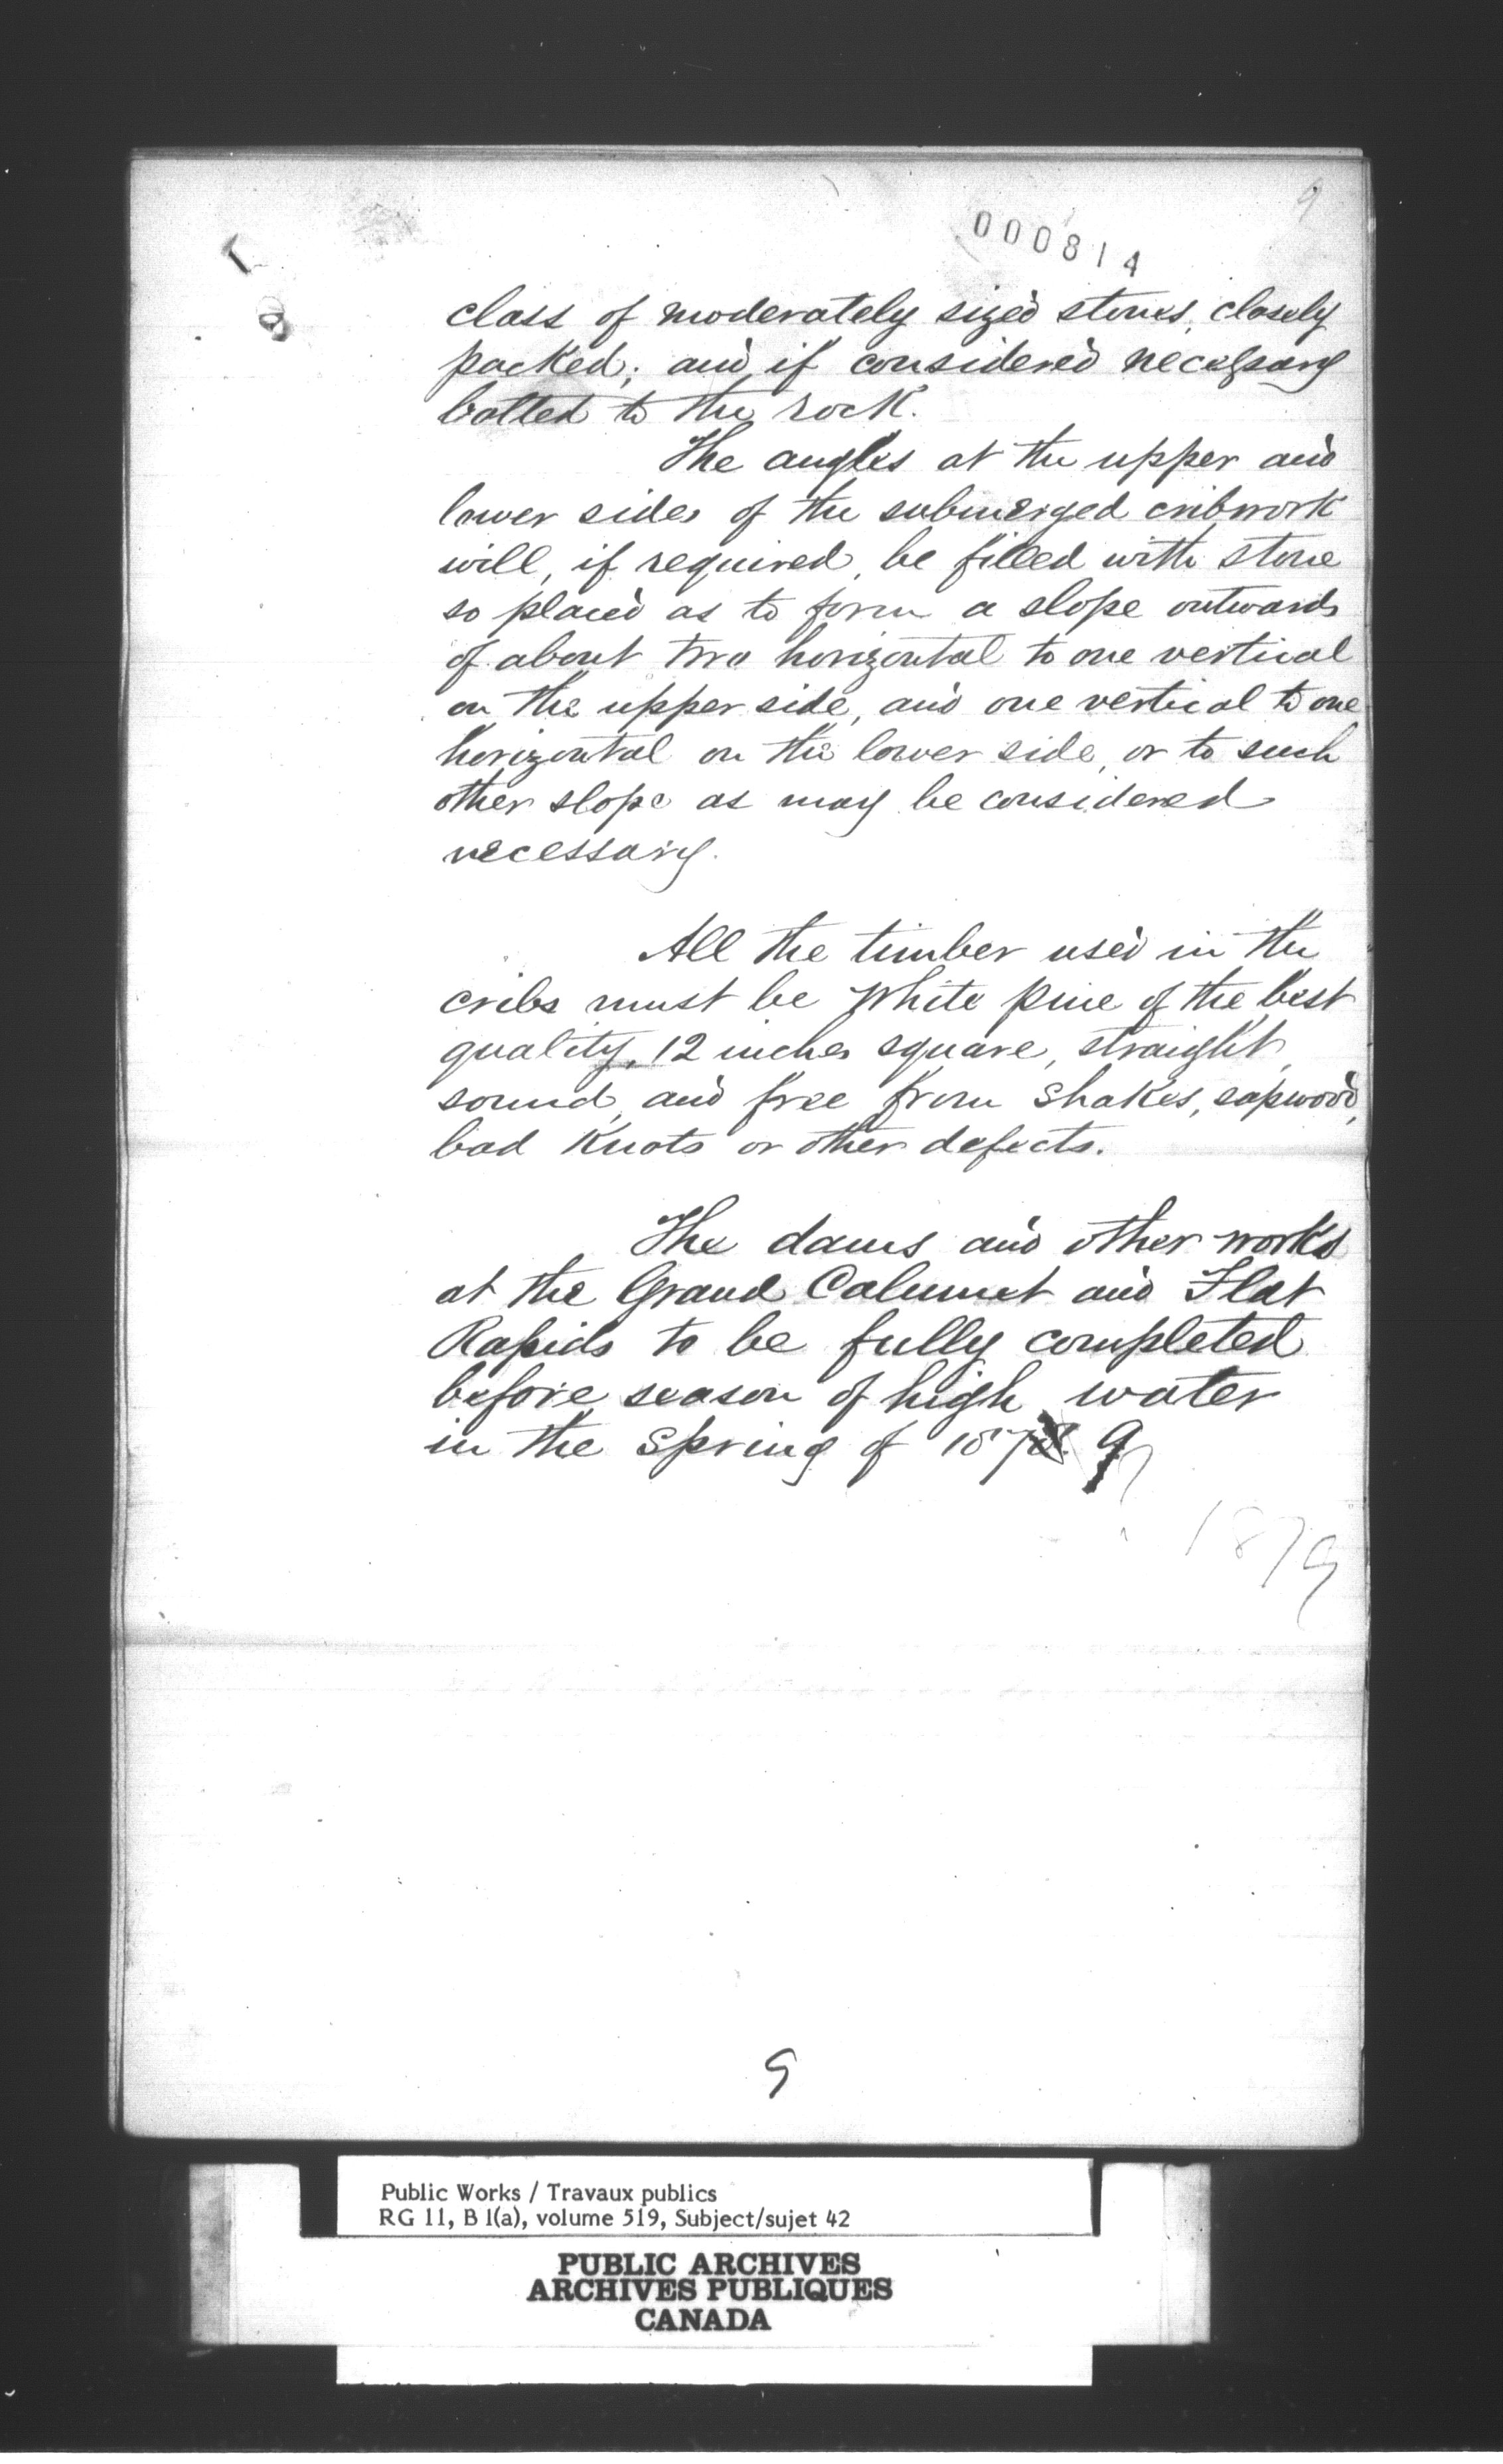 9
000814
class of moderately sized stones, closely
packed; and if considered necessary
bolted to the rock.
The angles at the upper and
lower sides of the submerged cribwork
will, if required, be filled with stone
so placed as to form a slope outwards
of about two horizontal to one vertical
on the upper side, and one vertical to one
horizontal on the lower side, or to such
other slope as may be considered
necessary.
All the timber used in the
cribs must be white pine of the best
quality, 12 inches square, straight,
sound, and free from shakes, sapwood,
bad knots or other defects.
The dams and other works
at the Grand Calumet and Flat
Rapids to be fully completed
before season of high water
in the spring of 1878. 9
1879
9
Public Works / Travaux publics
RG 11, B 1(a), volume 519, Subject/sujet 42
PUBLIC ARCHIVES
ARCHIVES PUBLIQUES
CANADA